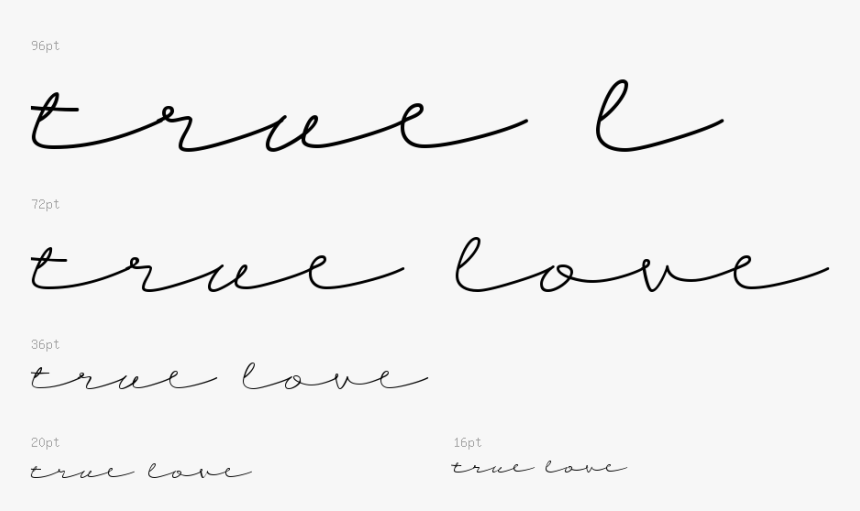 96pt
true l
72pt
true love
36pt
true love
20pt
true love
16pt
true love